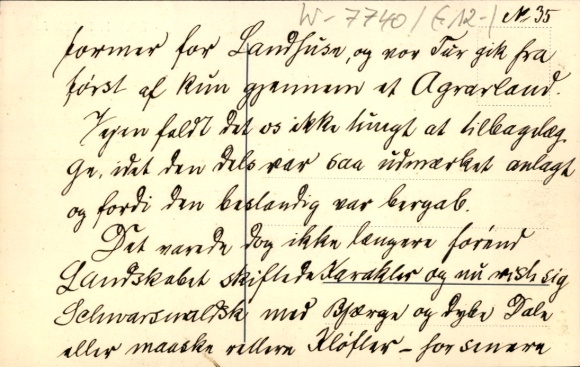 W-7740/(E.12-) № 35
former for Landhuse, og vor Tur gik fra
først af kun gjennem et Agrarland.
Vejen faldt det os ikke tungt at tilbagelæg
ge, idet den dels var saa udmærket anlagt
og fordi den bestandig var bergab.
Det varede dog ikke længere förend
Landskabet skiftede Karakter og nu viste sig
Schwarswaldsk med Bjærge og dybe Dale
eller maaske rettere Kløfter – for smere